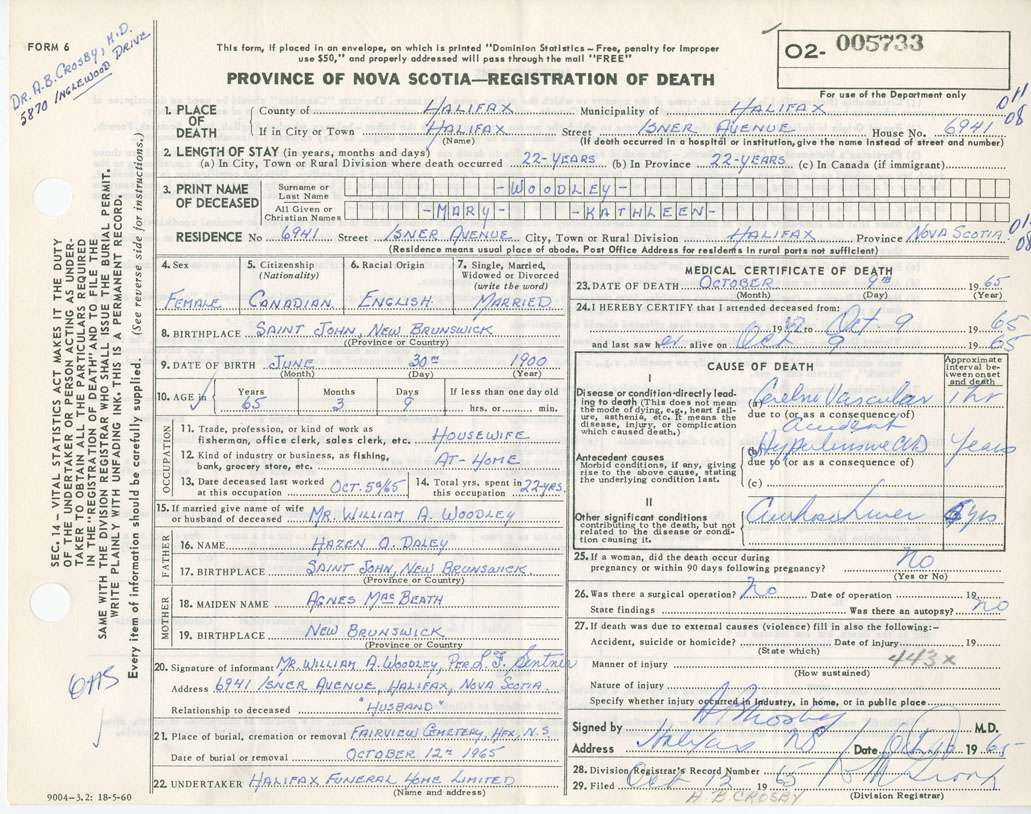 FORM 6
DR. A.B. CROSBY, M.D.
5870 INGLEWOOD DRIVE
This form, if placed in an envelope, on which is printed "Dominion Statistics – Free, penalty for improper
use $50," and properly addressed will pass through the mail "FREE"
PROVINCE OF NOVA SCOTIA—REGISTRATION OF DEATH
O2- 005733
For use of the Department only
011
08
1. PLACE OF DEATH
County of HALIFAX Municipality of HALIFAX
If in City or Town HALIFAX Street ISNER AVENUE House No. 6941
(Name) (If death occurred in a hospital or institution, give the name instead of street and number)
2. LENGTH OF STAY (in years, months and days)
(a) In City, Town or Rural Division where death occurred 22-YEARS (b) In Province 22-YEARS (c) In Canada (if immigrant)
3. PRINT NAME OF DECEASED
Surname or Last Name -WOODLEY-
All Given or Christian Names -MARY- -KATHLEEN-
RESIDENCE No 6941 Street ISNER AVENUE City, Town or Rural Division HALIFAX Province NOVA SCOTIA
08
(Residence means usual place of abode. Post Office Address for residents in rural parts not sufficient)
4. Sex
FEMALE
5. Citizenship
(Nationality)
CANADIAN
6. Racial Origin
ENGLISH
7. Single, Married, Widowed or Divorced
(write the word)
MARRIED
8. BIRTHPLACE SAINT JOHN, NEW BRUNSWICK
(Province or Country)
9. DATE OF BIRTH JUNE 30TH 1900
(Month) (Day) (Year)
10. AGE in Years 65 Months 3 Days 9 If less than one day old hrs. or min.
OCCUPATION
11. Trade, profession or kind of work as
fisherman, office clerk, sales clerk, etc. HOUSEWIFE
12. Kind of industry or business, as fishing,
bank, grocery store, etc. AT-HOME
13. Date deceased last worked
at this occupation OCT. 59/65
14. Total yrs. spent in
this occupation 22-YRS.
15. If married give name of wife
or husband of deceased MR. WILLIAM A. WOODLEY
FATHER
16. NAME HAZEN O. DALEY
17. BIRTHPLACE SAINT JOHN, NEW BRUNSWICK
(Province or Country)
MOTHER
18. MAIDEN NAME AGNES MACBEATH
19. BIRTHPLACE NEW BRUNSWICK
(Province or Country)
20. Signature of informant MR. WILLIAM A. WOODLEY, PER L. F. Sentner
Address 6941 ISNER AVENUE, HALIFAX, NOVA SCOTIA.
Relationship to deceased "HUSBAND"
21. Place of burial, cremation or removal FAIRVIEW CEMETERY, HFX, N.S
Date of burial or removal OCTOBER 12TH 1965
22. UNDERTAKER HALIFAX FUNERAL HOME LIMITED
(Name and address)
MEDICAL CERTIFICATE OF DEATH
23. DATE OF DEATH OCTOBER 9TH 1965
(Month) (Day) (Year)
24. I HEREBY CERTIFY that I attended deceased from:
to Oct. 9 1965
and last saw her alive on Oct 9 1965
CAUSE OF DEATH
Approximate interval between onset and death
I
Disease or condition directly leading to death (This does not mean
the mode of dying, e.g., heart failure, asthenia, etc. It means the
disease, injury, or complication
which caused death.)
(a) Cerebro Vascular 1 hr
due to (or as a consequence of)
accident
Antecedent causes
Morbid conditions, if any, giving
rise to the above cause, stating
the underlying condition last.
(b) Hypertensive CVD Years
due to (or as a consequence of)
(c)
II
Other significant conditions
contributing to the death, but not
related to the disease or condition causing it.
yrs
25. If a woman, did the death occur during
pregnancy or within 90 days following pregnancy? No
(Yes or No)
26. Was there a surgical operation? No Date of operation 19
State findings Was there an autopsy? no
27. If death was due to external causes (violence) fill in also the following:–
Accident, suicide or homicide? Date of injury 19
(State which)
443x
Manner of injury
(How sustained)
Nature of injury
Specify whether injury occurred in industry, in home, or in public place
Signed by M.D.
Address Halifax NS Date 1965
28. Division Registrar's Record Number
29. Filed Oct 12 1965
(Division Registrar)
A.B. CROSBY
SEC. 14 – VITAL STATISTICS ACT MAKES IT THE DUTY
OF THE UNDERTAKER OR PERSON ACTING AS UNDERTAKER TO OBTAIN ALL THE PARTICULARS REQUIRED
IN THE "REGISTRATION OF DEATH" AND TO FILE THE
SAME WITH THE DIVISION REGISTRAR WHO SHALL ISSUE THE BURIAL PERMIT.
WRITE PLAINLY WITH UNFADING INK. THIS IS A PERMANENT RECORD.
Every item of information should be carefully supplied. (See reverse side for instructions.)
OAS
9004–3.2: 18-5-60